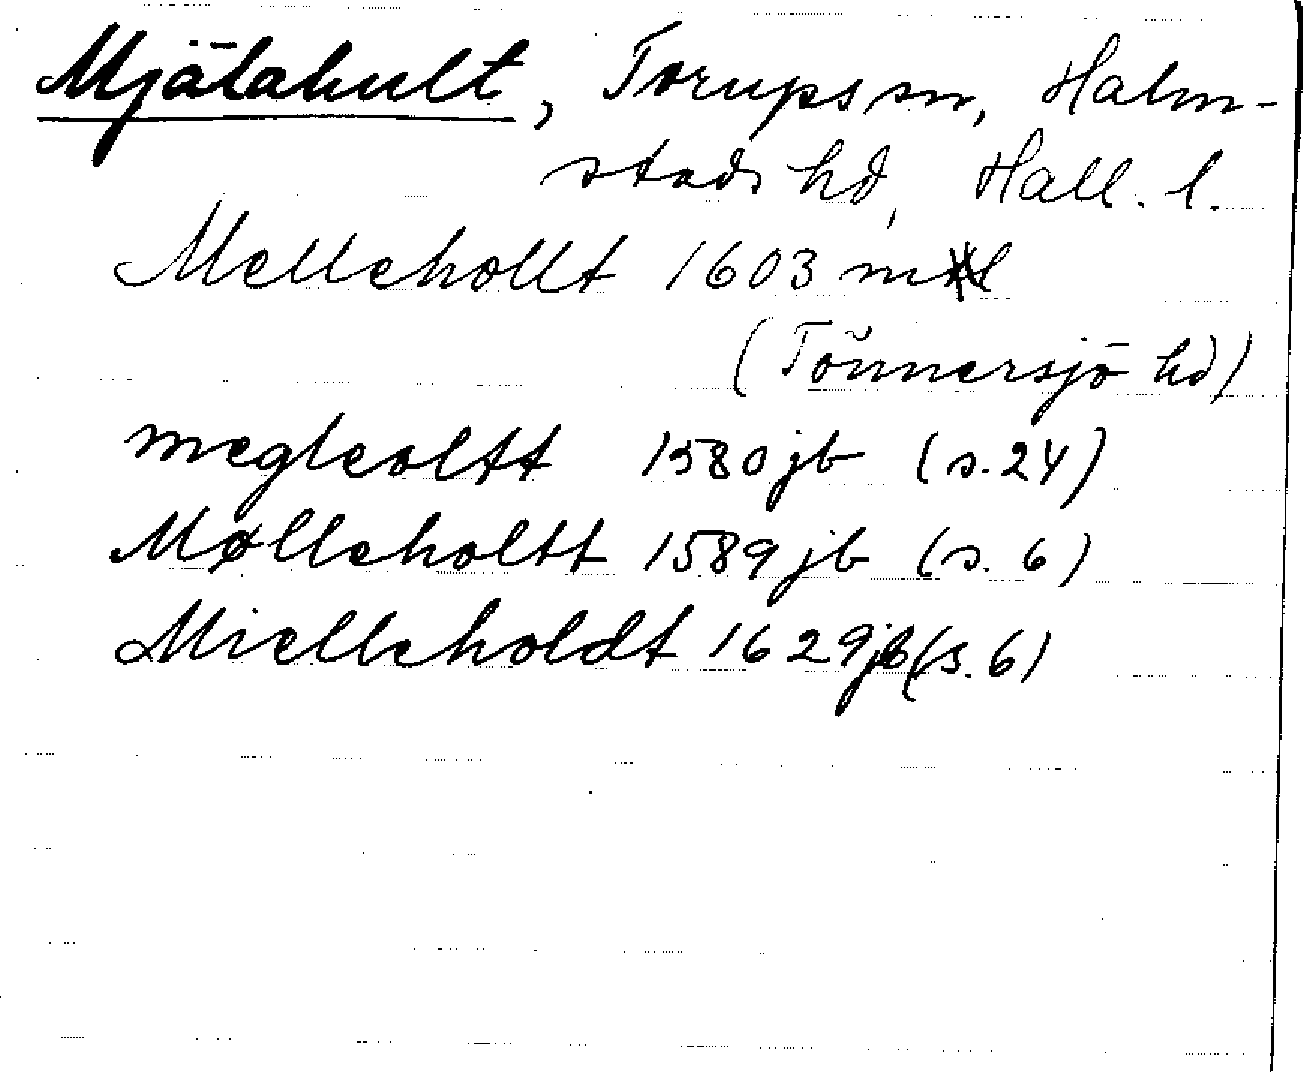 Mjälahult, Torups sn, Halm-
stads hd, Hall. l.
Mellehollt 1603 ml
(Tönnersjö hd)
megleoltt 1580 jb (s. 24)
Mølleholtt 1589 jb (s. 6)
Mielleholdt 1629 jb (s. 6)